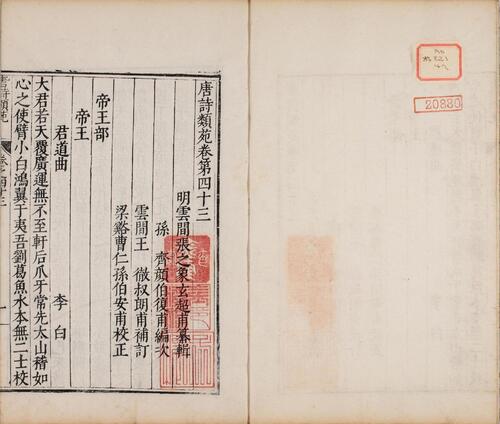 唐詩類苑卷第四十三
明雲間張之象玄超甫纂輯
孫　齊顏伯復甫編次
雲間王　徹叔朗甫補訂
梁谿曹仁孫伯安甫校正
帝王部
帝王
君道曲　李白
大君若天覆廣運無不至軒后爪牙常先太山稽如
心之使臂小白鴻翼于夷吾劉葛魚水本無二士校
唐詩類苑
20880